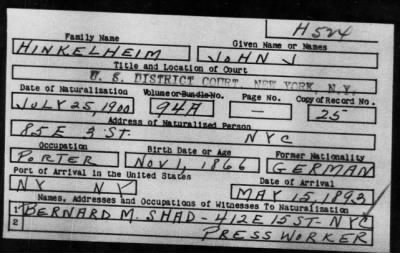 H524
Family Name Given Name or Names
HINKELHEIM JOHN J
Title and Location of Court
U. S. DISTRICT COURT, NEW YORK, N.Y.
Date of Naturalization Volume or Bundle No. Page No. Copy of Record No.
JULY 25, 1900 94A — 25
Address of Naturalized Person
85 E 3 ST. NYC
Occupation Birth Date or Age Former Nationality
PORTER NOV 1, 1866 GERMAN
Port of Arrival in the United States Date of Arrival
NY NY MAY 15, 1893
Names, Addresses and Occupations of Witnesses To Naturalization
1 BERNARD M. SHAD - 412 E 15 ST - NYC
2 PRESS WORKER